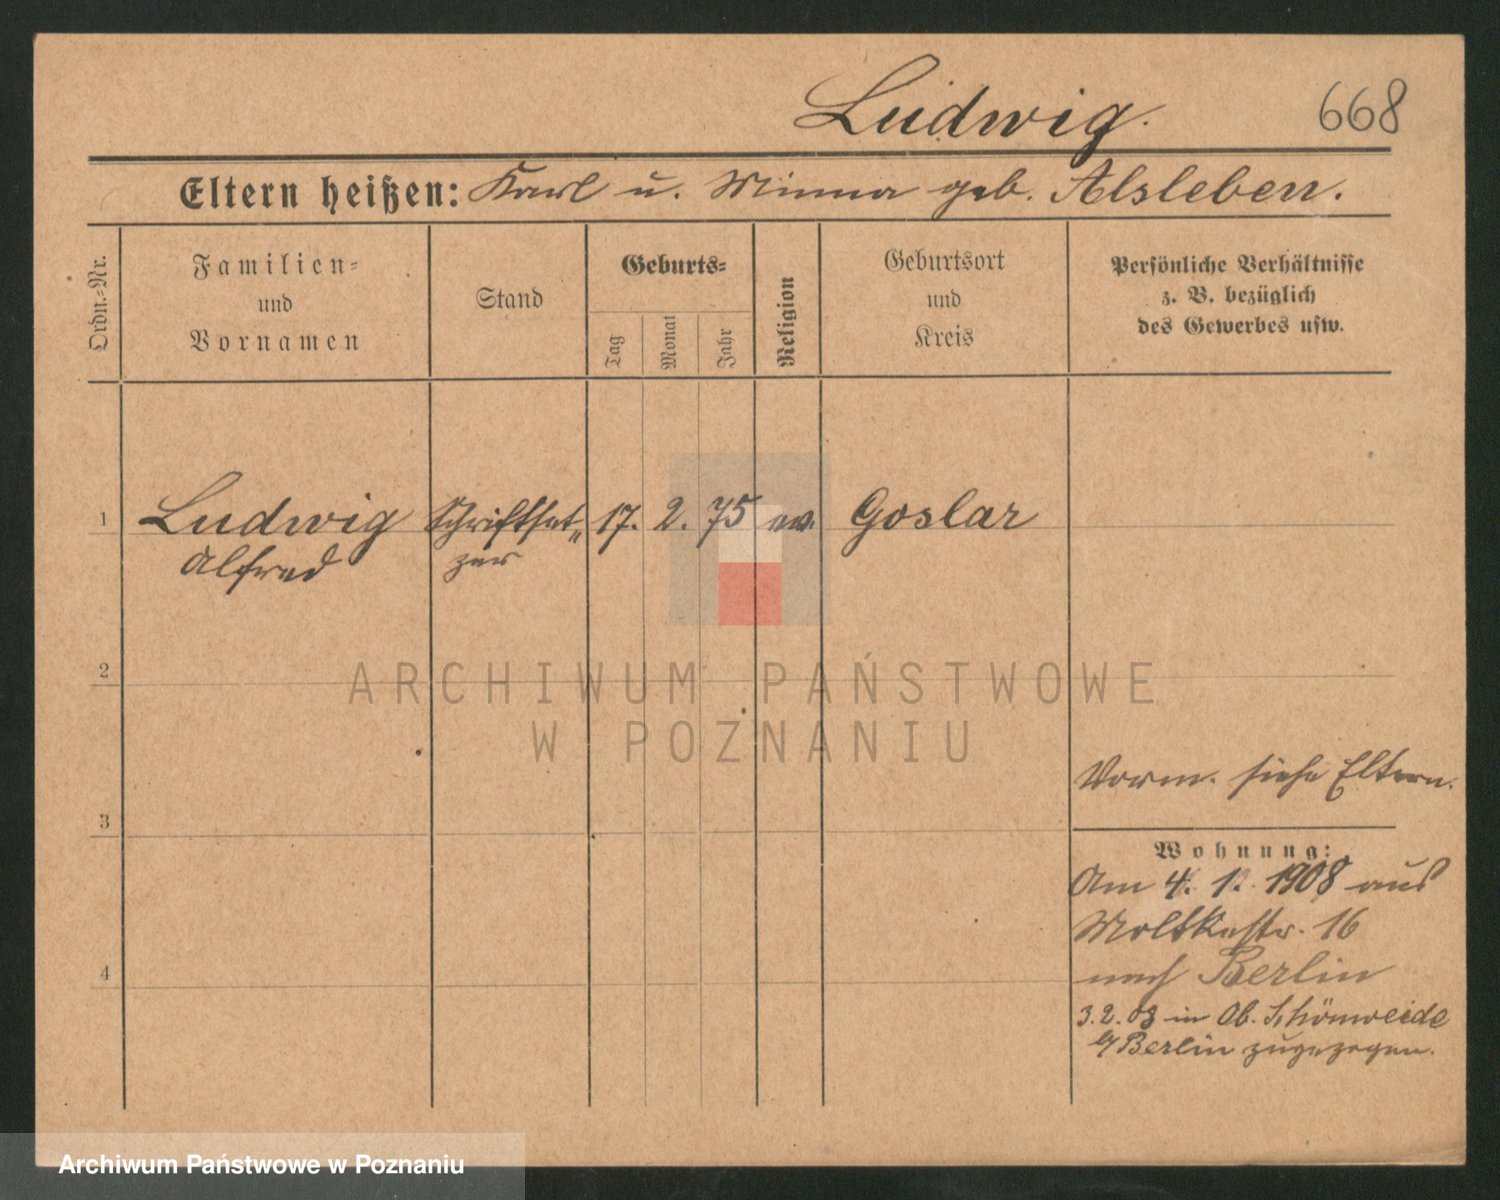 Ludwig.
668
Eltern heißen: Karl u. Minna geb. Alsleben.
Ordn.=Nr.
Familien=
und
Vornamen
Stand
Geburts=
Tag
Monat
Jahr
Religion
Geburtsort
und
Kreis
Persönliche Verhältnisse
z. B. bezüglich
des Gewerbes usw.
1
Ludwig
Alfred
Schriftset„
zer
17. 2. 75
ev.
Goslar
2
3
4
Vorm. siehe Eltern.
Wohnung:
Am 4. 1. 1908 aus
Moltkestr. 16
nach Berlin
3.2.08 in Ob. Schönweide
b/Berlin zugezogen.
ARCHIWUM PAŃSTWOWE
W POZNANIU
Archiwum Państwowe w Poznaniu